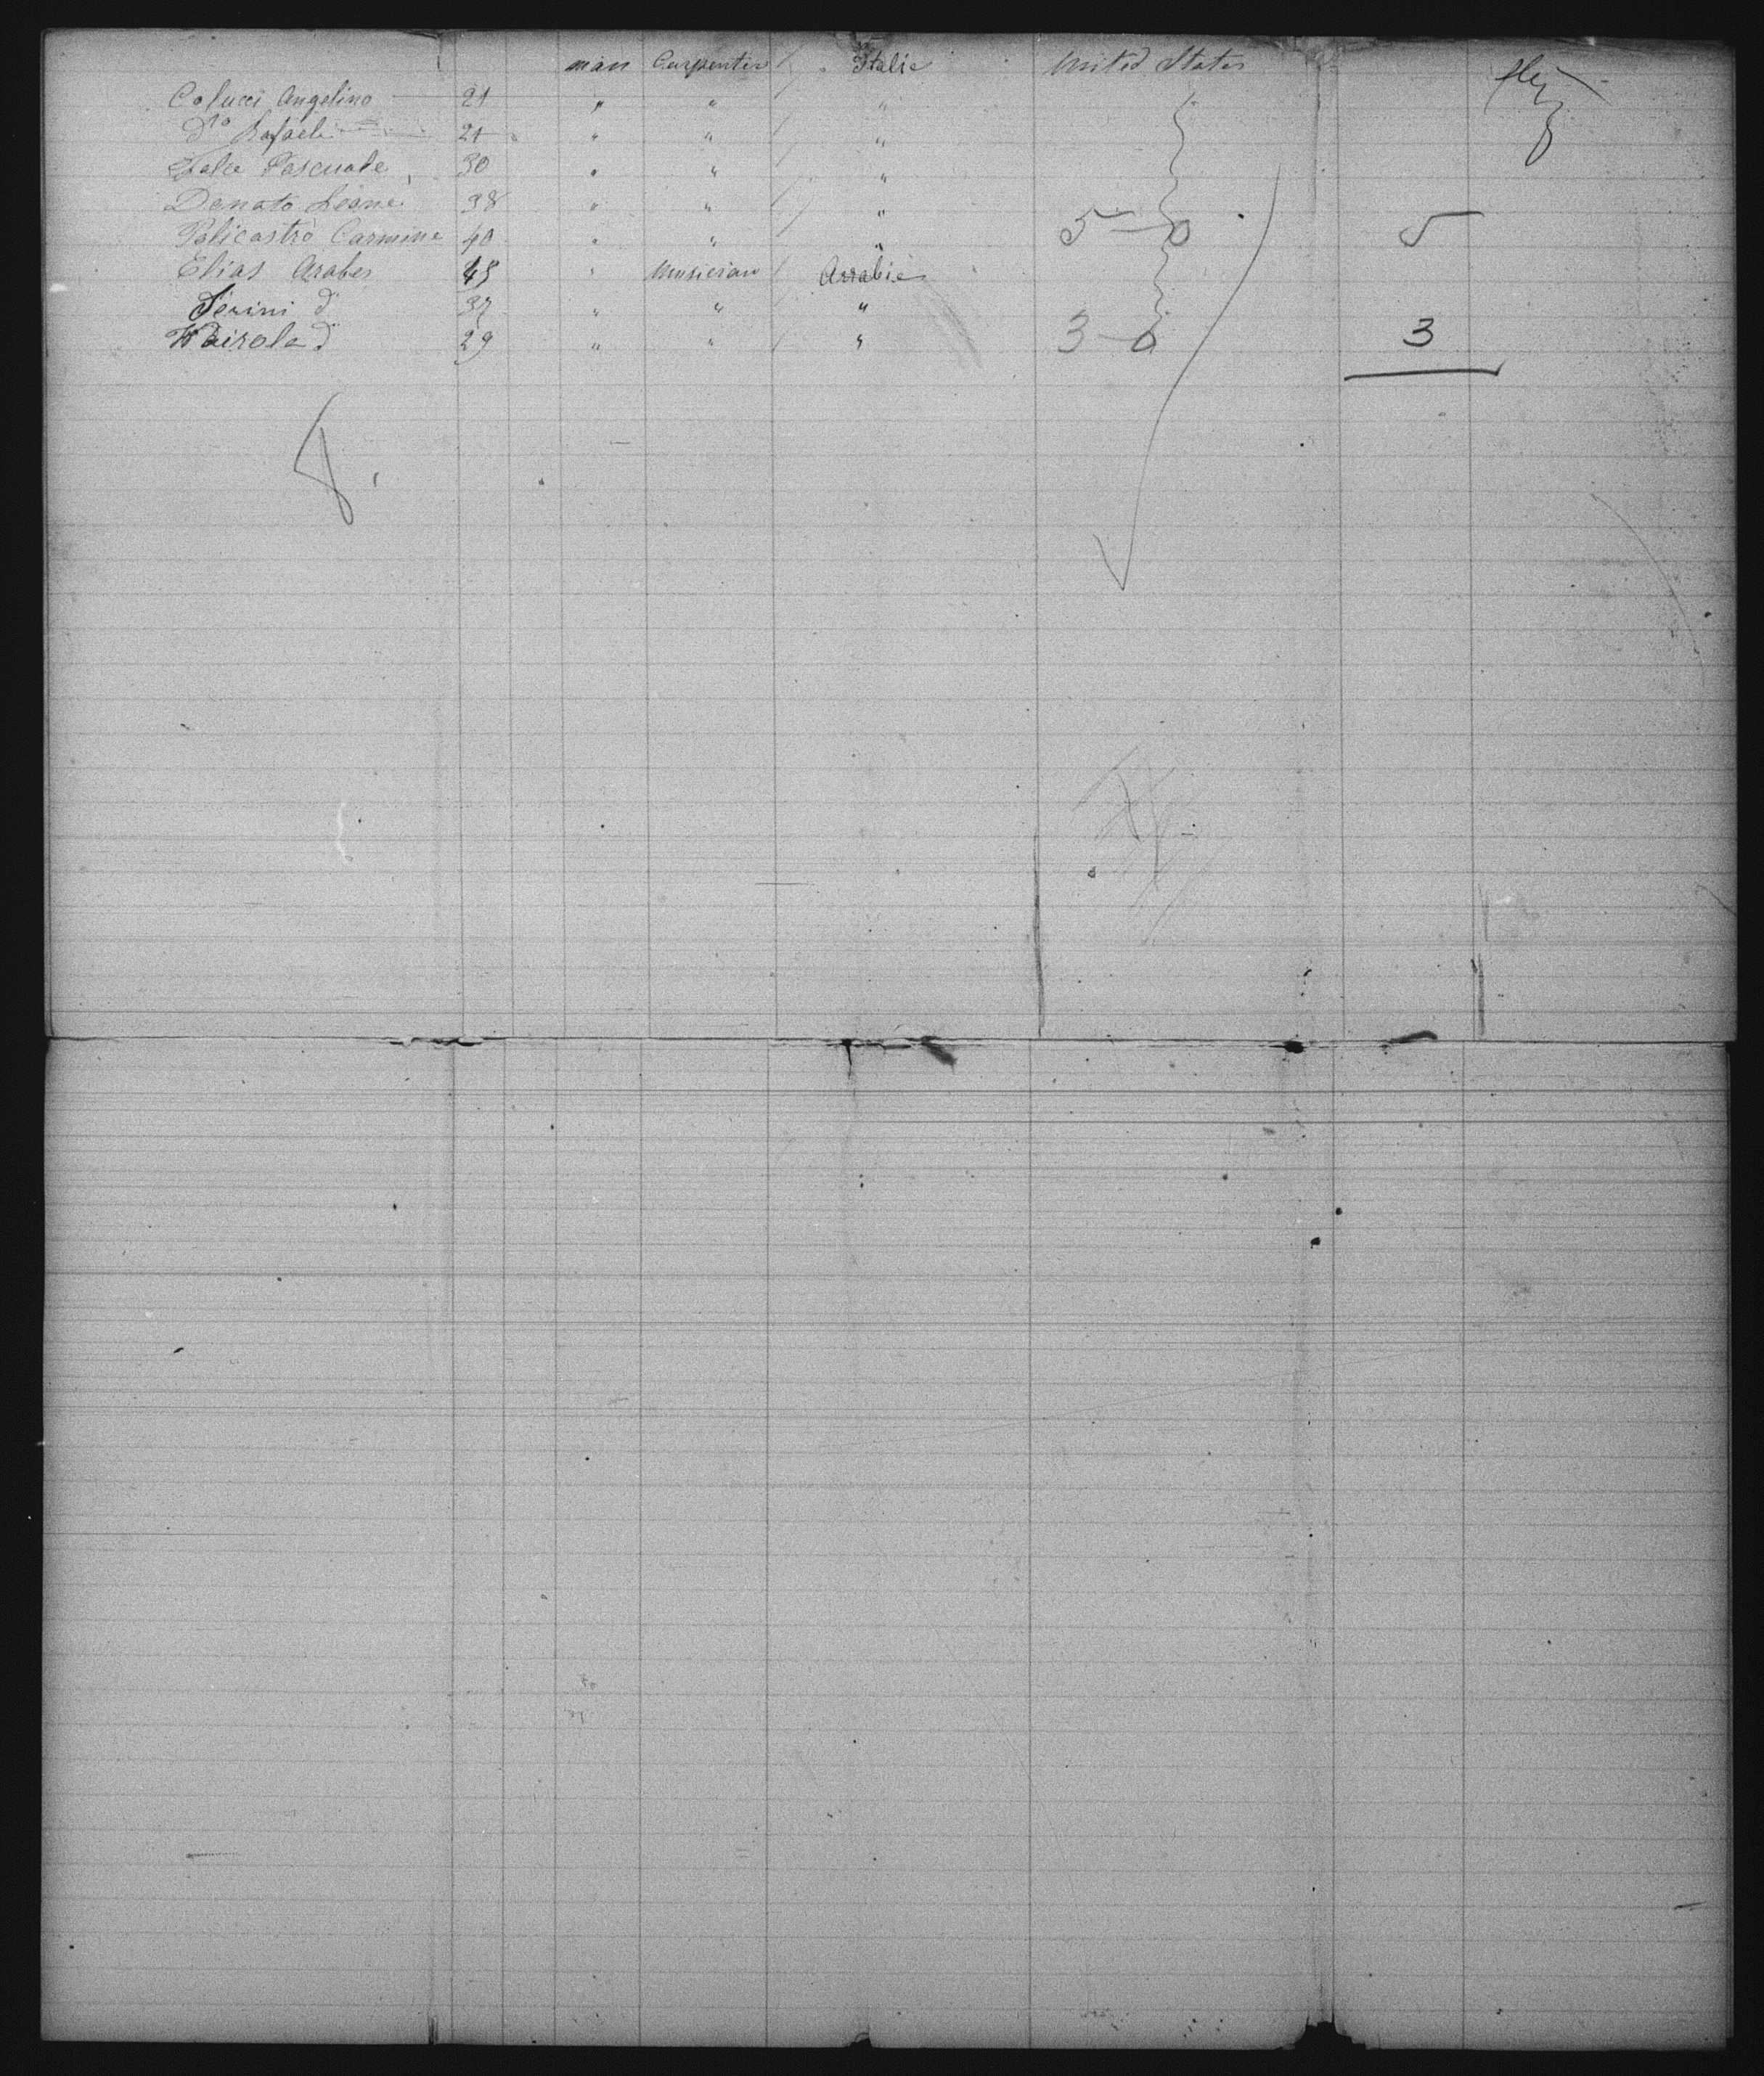 man Carpenter Italie United States
Colucci Angelino 21 " " "
Dto Rafaele 21 " " "
Pascuale 30 " " "
Denato Leone 38 " " "
Policastro Carmine 40 " " " 5-0 5
Elias Arabes 45 " Musician Arrabie
Serini d 37 " " "
d 29 " " " 3-0 3
8